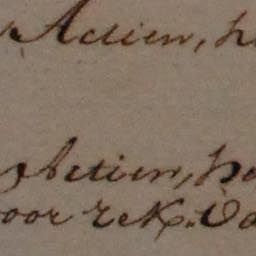 Actien, h
Actien, ho
oor rek. v